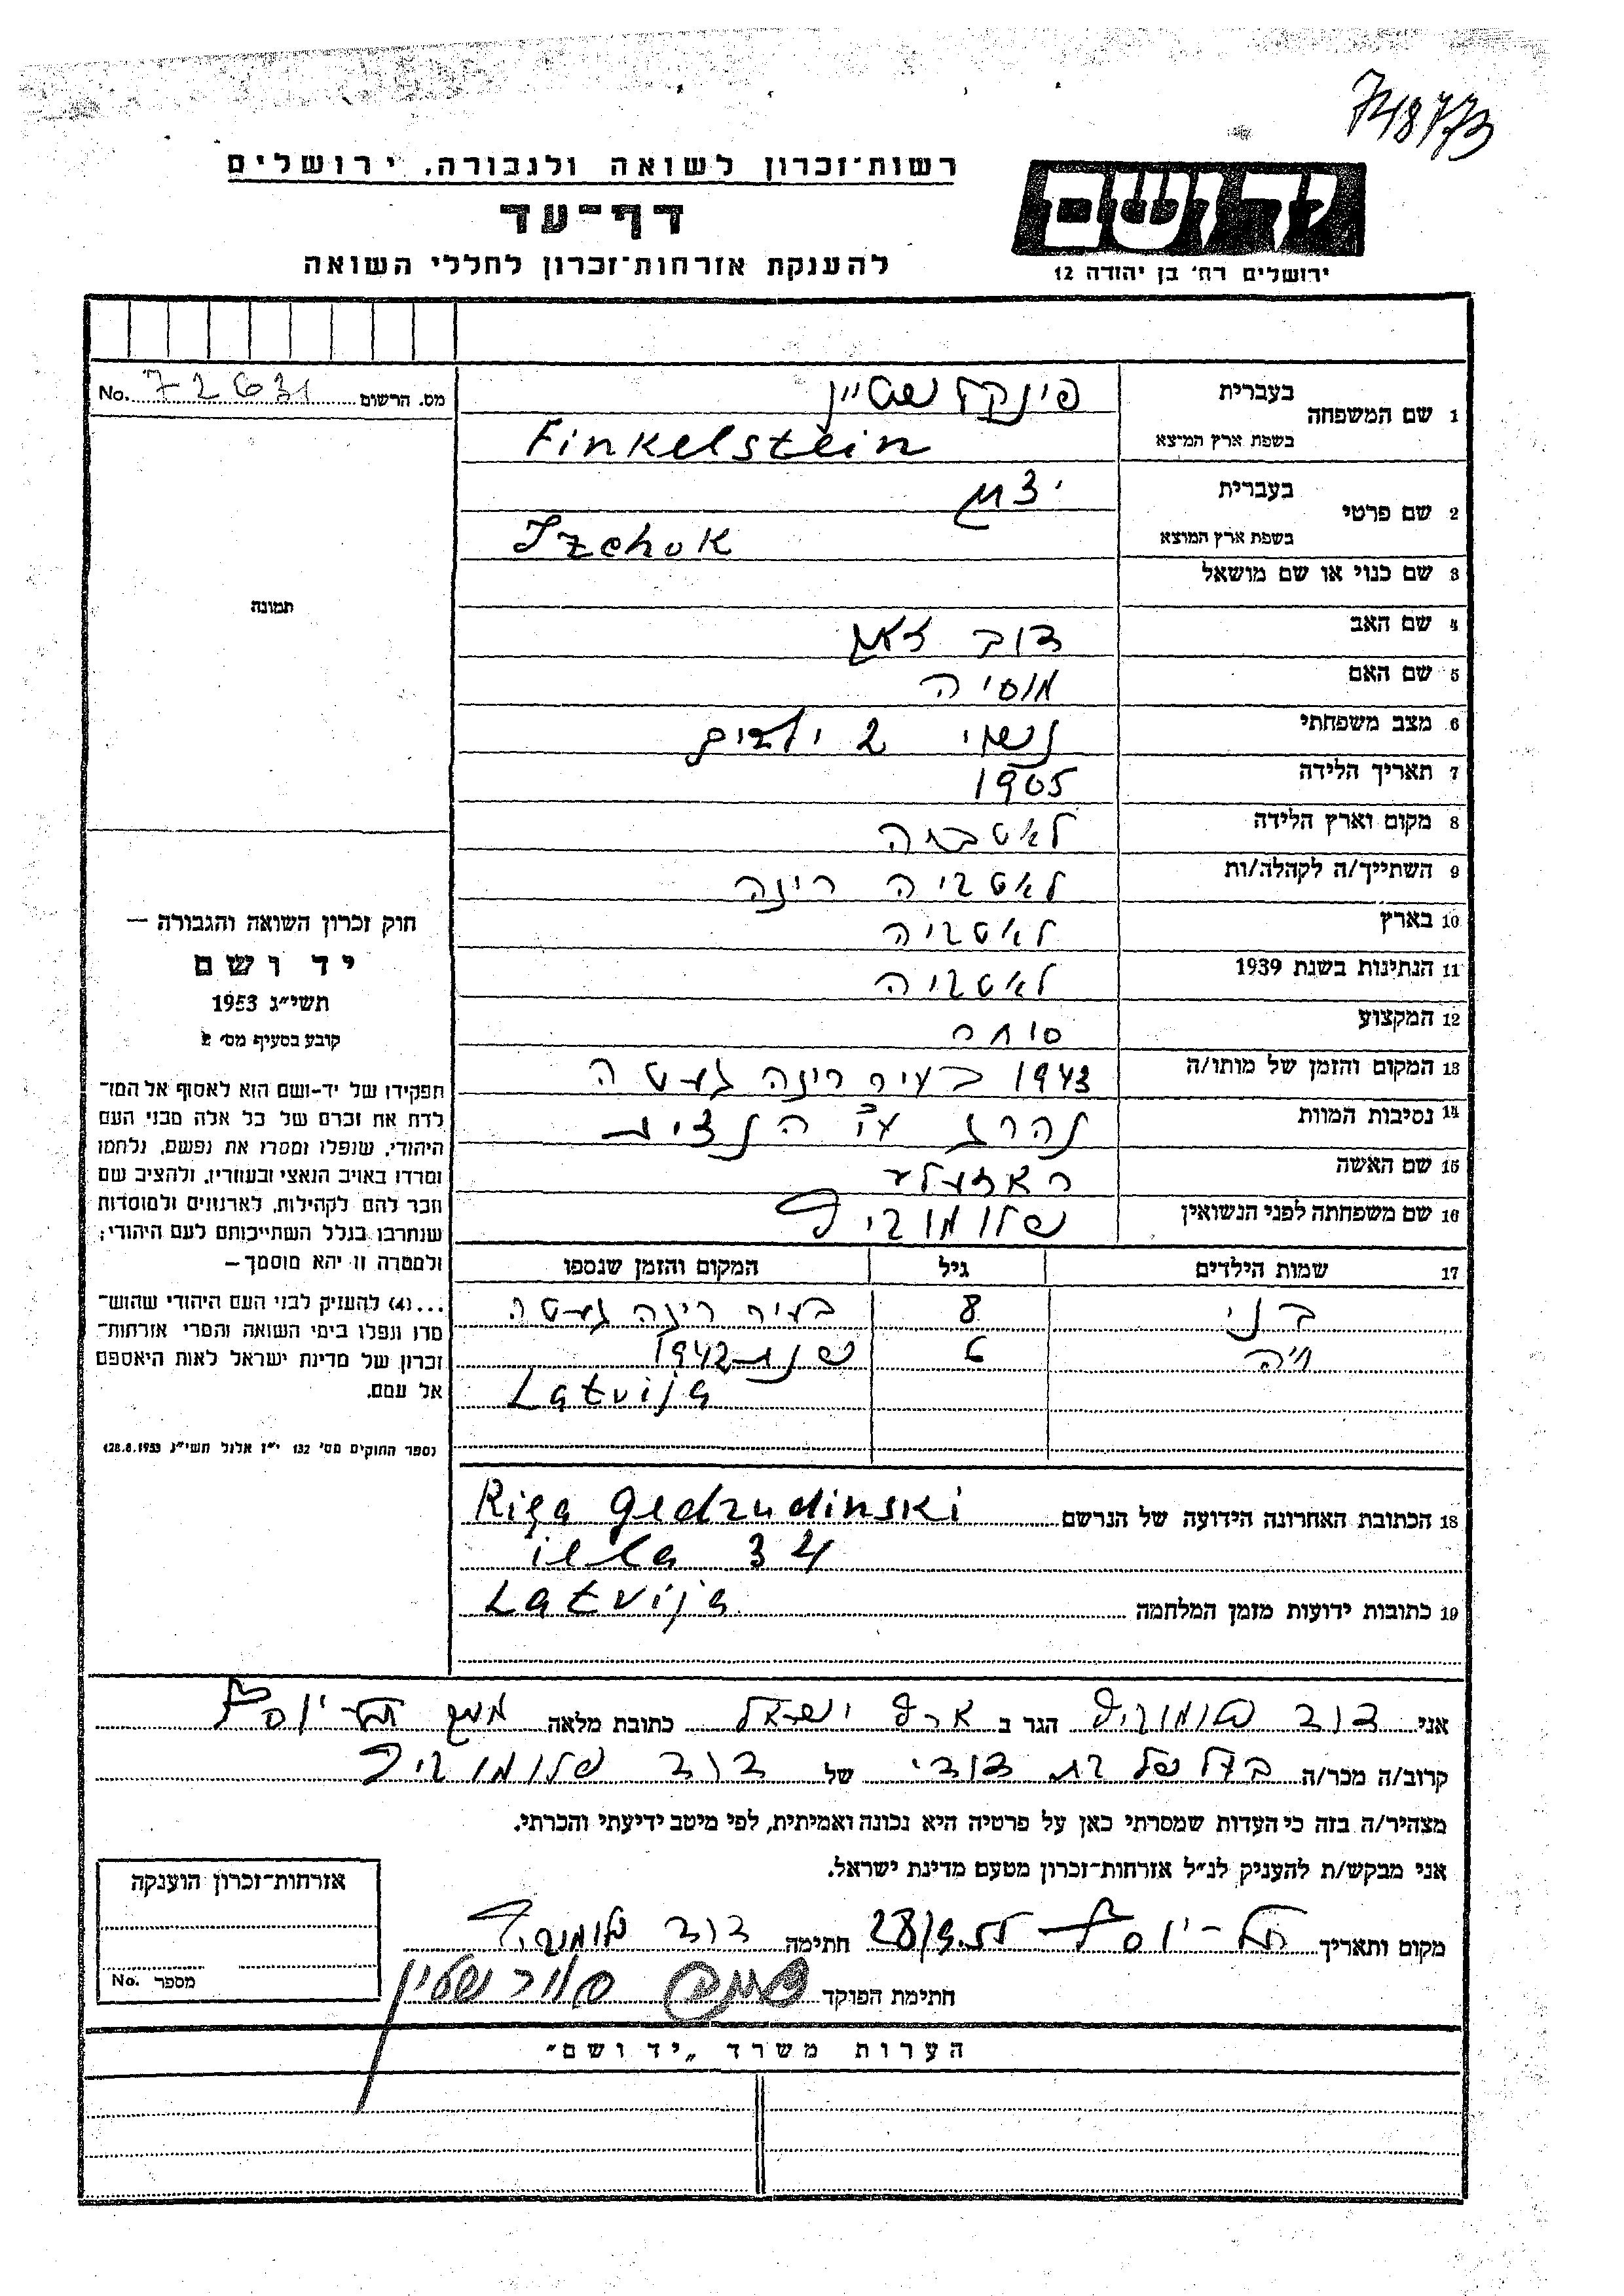 748773
רשות־זכרון לשואה ולגבורה, ירושלים
דף־עד
להענקת אזרחות־זכרון לחללי השואה
יד ושם
ירושלים רח׳ בן יהודה 12
מס. הרשום 72631 No.
תמונה
1 שם המשפחה בעברית פינקלשטיין
בשפת ארץ המוצא Finkelstein
2 שם פרטי בעברית יצחק
בשפת ארץ המוצא Izchok
3 שם כנוי או שם מושאל
4 שם האב דוב זאב
5 שם האם מוסיה
6 מצב משפחתי נשוי 2 ילדים
7 תאריך הלידה 1905
8 מקום וארץ הלידה לאטביה
9 השתייך/ה לקהלה/ות לאטביה ריגה
10 בארץ לאטביה
11 הנתינות בשנת 1939 לאטביה
12 המקצוע סוחר
13 המקום והזמן של מותו/ה 1943 בעיר ריגה געטה
14 נסיבות המוות נהרג ע״י הנצים
15 שם האשה
16 שם משפחתה לפני הנשואין שלומוביץ
17 שמות הילדים גיל המקום והזמן שנספו
בני 8 בעיר ריגה געטה
חיה 6 שנת 1942
Latvija
18 הכתובת האחרונה הידועה של הנרשם Riga Gedrudinski
iela 34
19 כתובות ידועות מזמן המלחמה Latvija
חוק זכרון השואה והגבורה —
יד ושם
תשי״ג 1953
קובע בסעיף מס׳ 2
תפקידו של יד־ושם הוא לאסוף אל המו־
לדת את זכרם של כל אלה מבני העם
היהודי, שנפלו ומסרו את נפשם, נלחמו
ומרדו באויב הנאצי ובעוזריו, ולהציב שם
וזכר להם לקהילות, לארגונים ולמוסדות
שנחרבו בגלל השתייכותם לעם היהודי;
ולמטרה זו יהא מוסמך —
...(4) להעניק לבני העם היהודי שהוש־
מדו ונפלו בימי השואה והמרי אזרחות־
זכרון של מדינת ישראל לאות היאספם
אל עמם.
(ספר החוקים מס׳ 132 י״ז אלול תשי״ג 28.8.1953)
אני דוד שלומוביץ הגר ב ארץ ישראל כתובת מלאה משק תל־יוסף
קרוב/ה מכר/ה בעל של בת דודי של דוד שלומוביץ
מצהיר/ה בזה כי העדות שמסרתי כאן על פרטיה היא נכונה ואמיתית, לפי מיטב ידיעתי והכרתי.
אני מבקש/ת להעניק לנ״ל אזרחות־זכרון מטעם מדינת ישראל.
מקום ותאריך תל־יוסף 28/9.55 חתימה דוד שלומוביץ
חתימת הפוקד
אזרחות־זכרון הוענקה
מספר No.
הערות משרד „יד ושם״